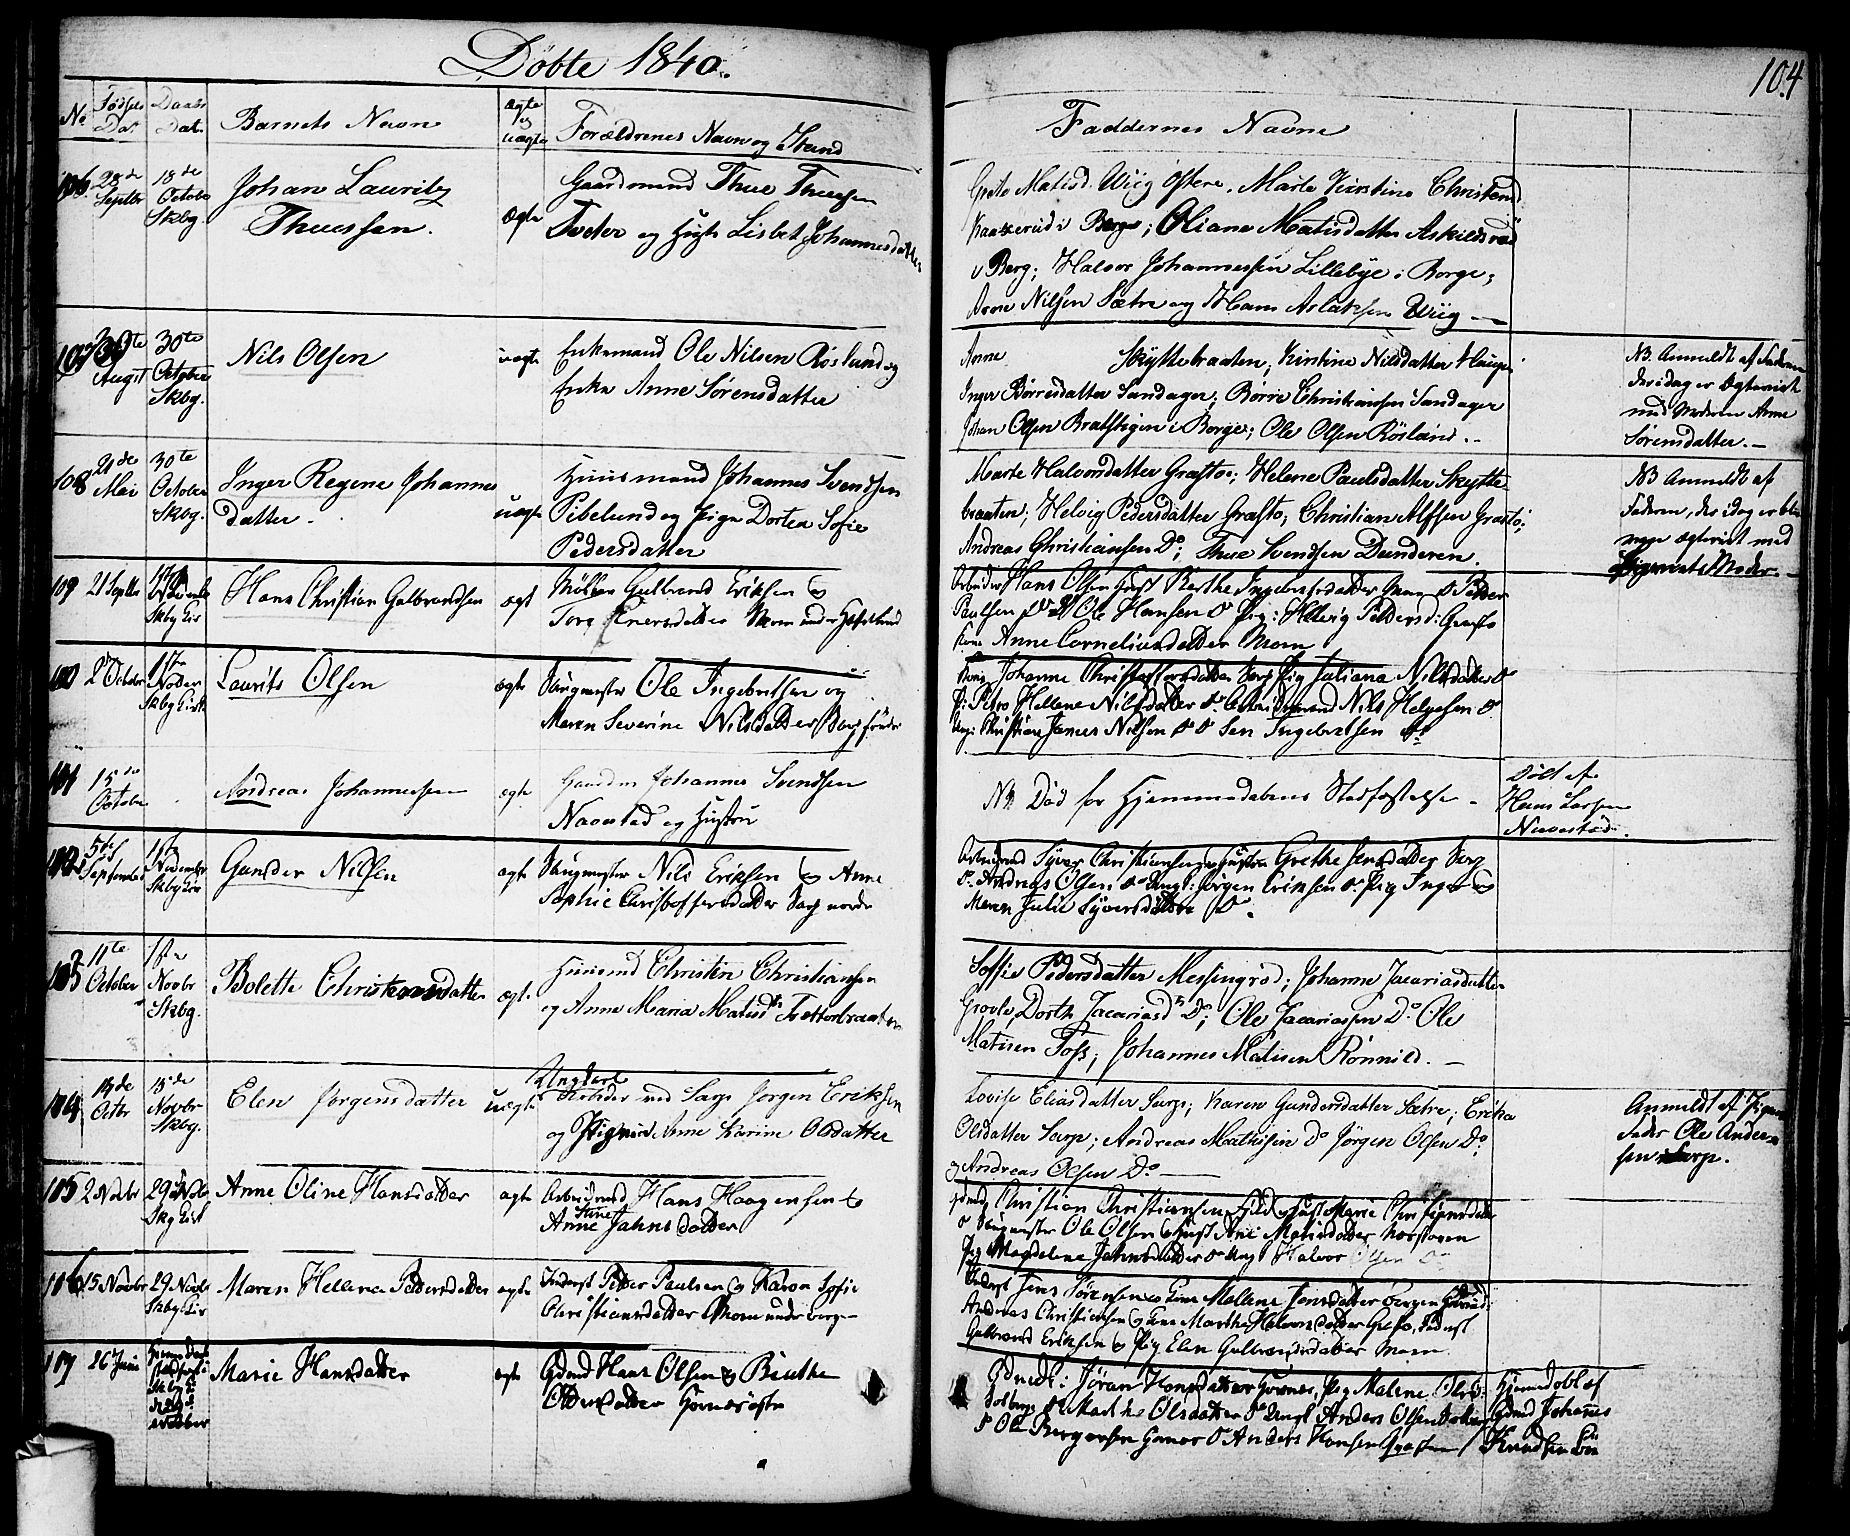 Döbte 1840.
104
No
Födsels Dat.
Daabs Dat.
Barnets Navn
Ægte og uægte
Forældrenes Navn og Stand
Faddernes Navne
106
28de Septbr
18de Octobr Skbg.
Johan Lauritz
Thuessen.
Ægte
Gaardmand Thue Thuesen
Tveter og Hust Lisbet Johannesdatter
Grete Matisd. Wiig Östere, Marte Kirstine Christensd.
i Berg; Oliane Matisdatter Askildsrød
i Berg; Halvor Johannessen Lillebye i Borge;
Arne Nilsen Sætre og Hans Aslaksen Wiig
107
30te Augst
30te October Skbg.
Nils Olsen
uægte
Enkemand Ole Nilsen Röslund og
Enke Anne Sörensdatter
Anne Skyttebraaten; Kirstine Nilsdatter Hauge
Inger Börresdatter Sandager; Börre Christiansen Sandager
Johan Olsen i Borge; Ole Olsen Röslund.
NB. Anmeldt af Faderen
der idag er Ægteviet
med Moderen Anne
Sörensdatter.
108
21de Mai
30te October Skbg.
Inger Regine Johannes
datter
uægte
Huusmand Johannes Svendsen
Pibelund og Pige Dortea Sofie
Pedersdatter
Marte Halvorsdatter Græsto; Helene Paulsdatter Skytte
braaten; Helvig Pedersdatter Græsto; Christian Alfsen Græsto;
Andreas Christiansen Do; Thue Svendsen Dunderen.
NB Anmeldt af
Faderen, der idag er ble
ven ægteviet med
Pigebarnets Moder.
109
21 Septbr
Skbg Kir
Hans Christian Gulbrandsen
ægt
Möller Gulbrand Eriksen og
Tore Enersdatter Moum under Hafslund
Arbeider Hans Olsen Hust Berthe Ingebretsdatter Moum Do Peder
Paulsen Do Ole Hansen Do Pig: Helvig Peddersd: Græsto
Kone Anne Corneliusdatter Moum
110
2 October
1ste Novbr Skbg Kirk
Laurits Olsen
ægte
Saugmester Ole Ingebretsen og
Maren Severine Nilsdatter Sarp søndre
Kone Johanne Christoffersdatter Sarp Pig Juliana Nilsdatter Do
Pi: Petro Hellene Nilsdatter Do Arbeidsmand Nils Helgesen Do
Ung: Christian James Nilsen Do Do Sen Ingebretsen Do
111
15de Octobr
Andreas Johannessen
ægte
Gaardm Johannes Svendsen
Navestad og Hustru
NB Död for Hjemmedaabens Stadfæstelse
Döbt af
Hans Larsen
Navestad.
112
5te Septembr
1ste November Skbg Kir
Gunder Nilsen
ægte
Saugmester Nils Eriksen og Anne
Sophie Christoffersdatter Sarp nordr
Arbeidsmd Syver Christiansen og Hustru Grethe Jensdatter Sarp
Do Andreas Olsen Do Ungk: Jörgen Eriksen Do Pig Inger og
Maren Julie Syversdatter Do.
113
11te October
1ste Novbr Skbg.
Bolette Christensdatter
ægte
Huusmd Christen Christiansen
og Anne Maria Matisdtr Tvetterbraaten
Soffie Pedersdatter Messingröd; Johanne Zacariasdatter
Dorth Zacariasdtr Do; Ole Zacariassen Do Ole
Matisen Foss; Johannes Matisen Rönnild.
114
14de Octbr
15de Novbr Skbg.
Elen Jörgensdatter
uægte
Ungkarl
Arbeider ved Sarp Jörgen Eriksen
og Pigen Anne Karine Olsdatter
Lovise Eliasdatter Sarp; Karen Gundersdatter Sætre; Erika
Olsdatter Sarp; Andreas Mathisen Do Jörgen Olsen Do;
og Andreas Olsen Do
Anmeldt af Pigens
Fader Ole Ander
sen i Sarp.
115
2 Novbr
29 Novb Skg Kirk
Anne Oline Hansdatter
ægte
Arbeidsmd Hans Haagensen og
Anne Stine Jahnsdatter
Gdmd Christian Christiansen Hust Marie Christiansdatter
Do Saugmester Ole Olsen og Hust Ane Matisdatter
Pig Magdelena Jahnsdatter Do Ungk Halvor Olsen Do
116
15 Novbr
29 Novb Skbg Kir
Maren Hellena Peddersdatter
ægte
Inderst Petter Paulsen og Karen Sofie
Christiansdatter Moum under Borge
Inderst Jens Sörensen og Kone Mellene Jensdatter
Andreas Christiansen og Kone Marthe Halvorsdatter Græsto, Inderst
Gulbrand Eriksen og Pig Elen Gulbransdatter Moum
117
26 Juni
Marie Hansdatter
ægte
Gdmd Hans Olsen og Birthe
Oldersdatter Hornes östre
Gdmdk: Jöran Hansdatter Hornes, Pig Malene Olsd:
Solberg Do Marthe Olsdatter Do Ungk Anders Olsen
Do Ole Bergersen Hornes Do Anders Hansen
Hjemmedöbt af
Gdmd Johannes
Knudsen